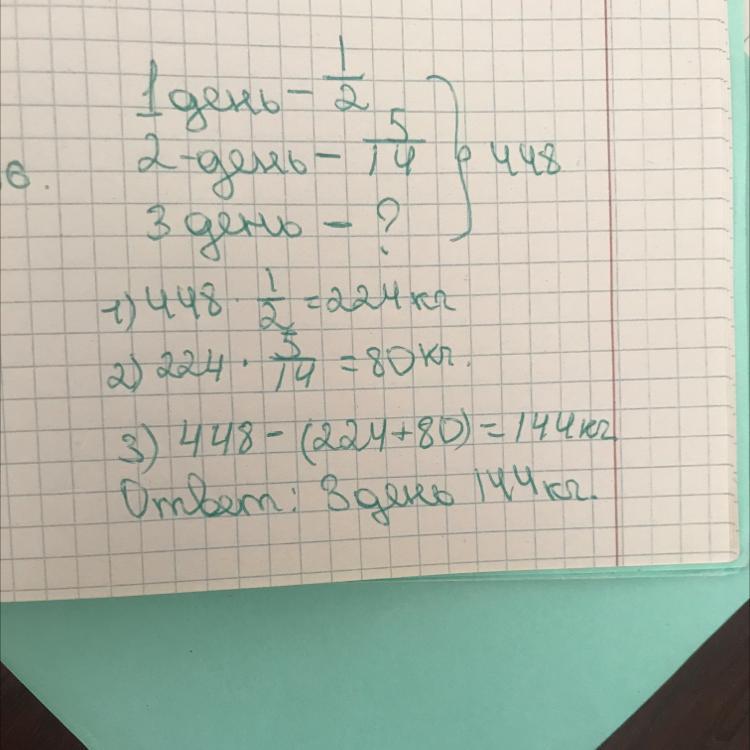 1 день – 1/2
2-день – 5/14 } 448
6.
3 день – ?
1) 448 · 1/2 = 224 кг
2) 224 · 5/14 = 80 кг.
3) 448 – (224+80) = 144 кг
Ответ: 3 день 144 кг.